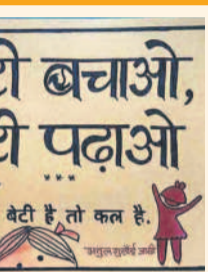 टी बचाओ,
टी पढ़ाओ
बेटी है, तो कल है.